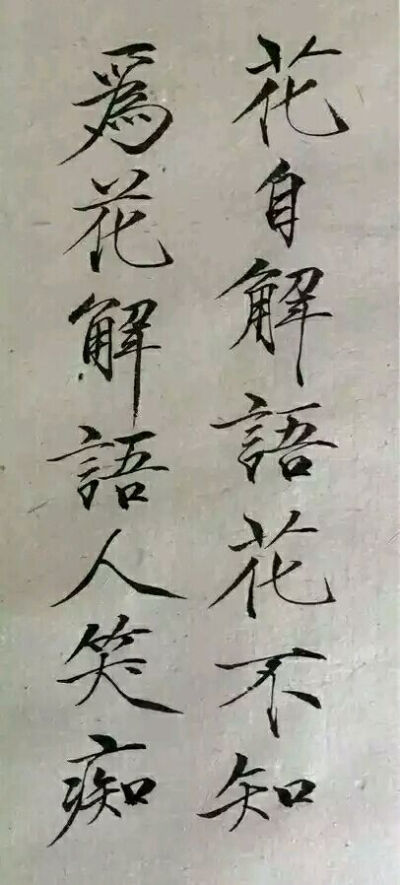 花自解語花不知
爲花解語人笑痴